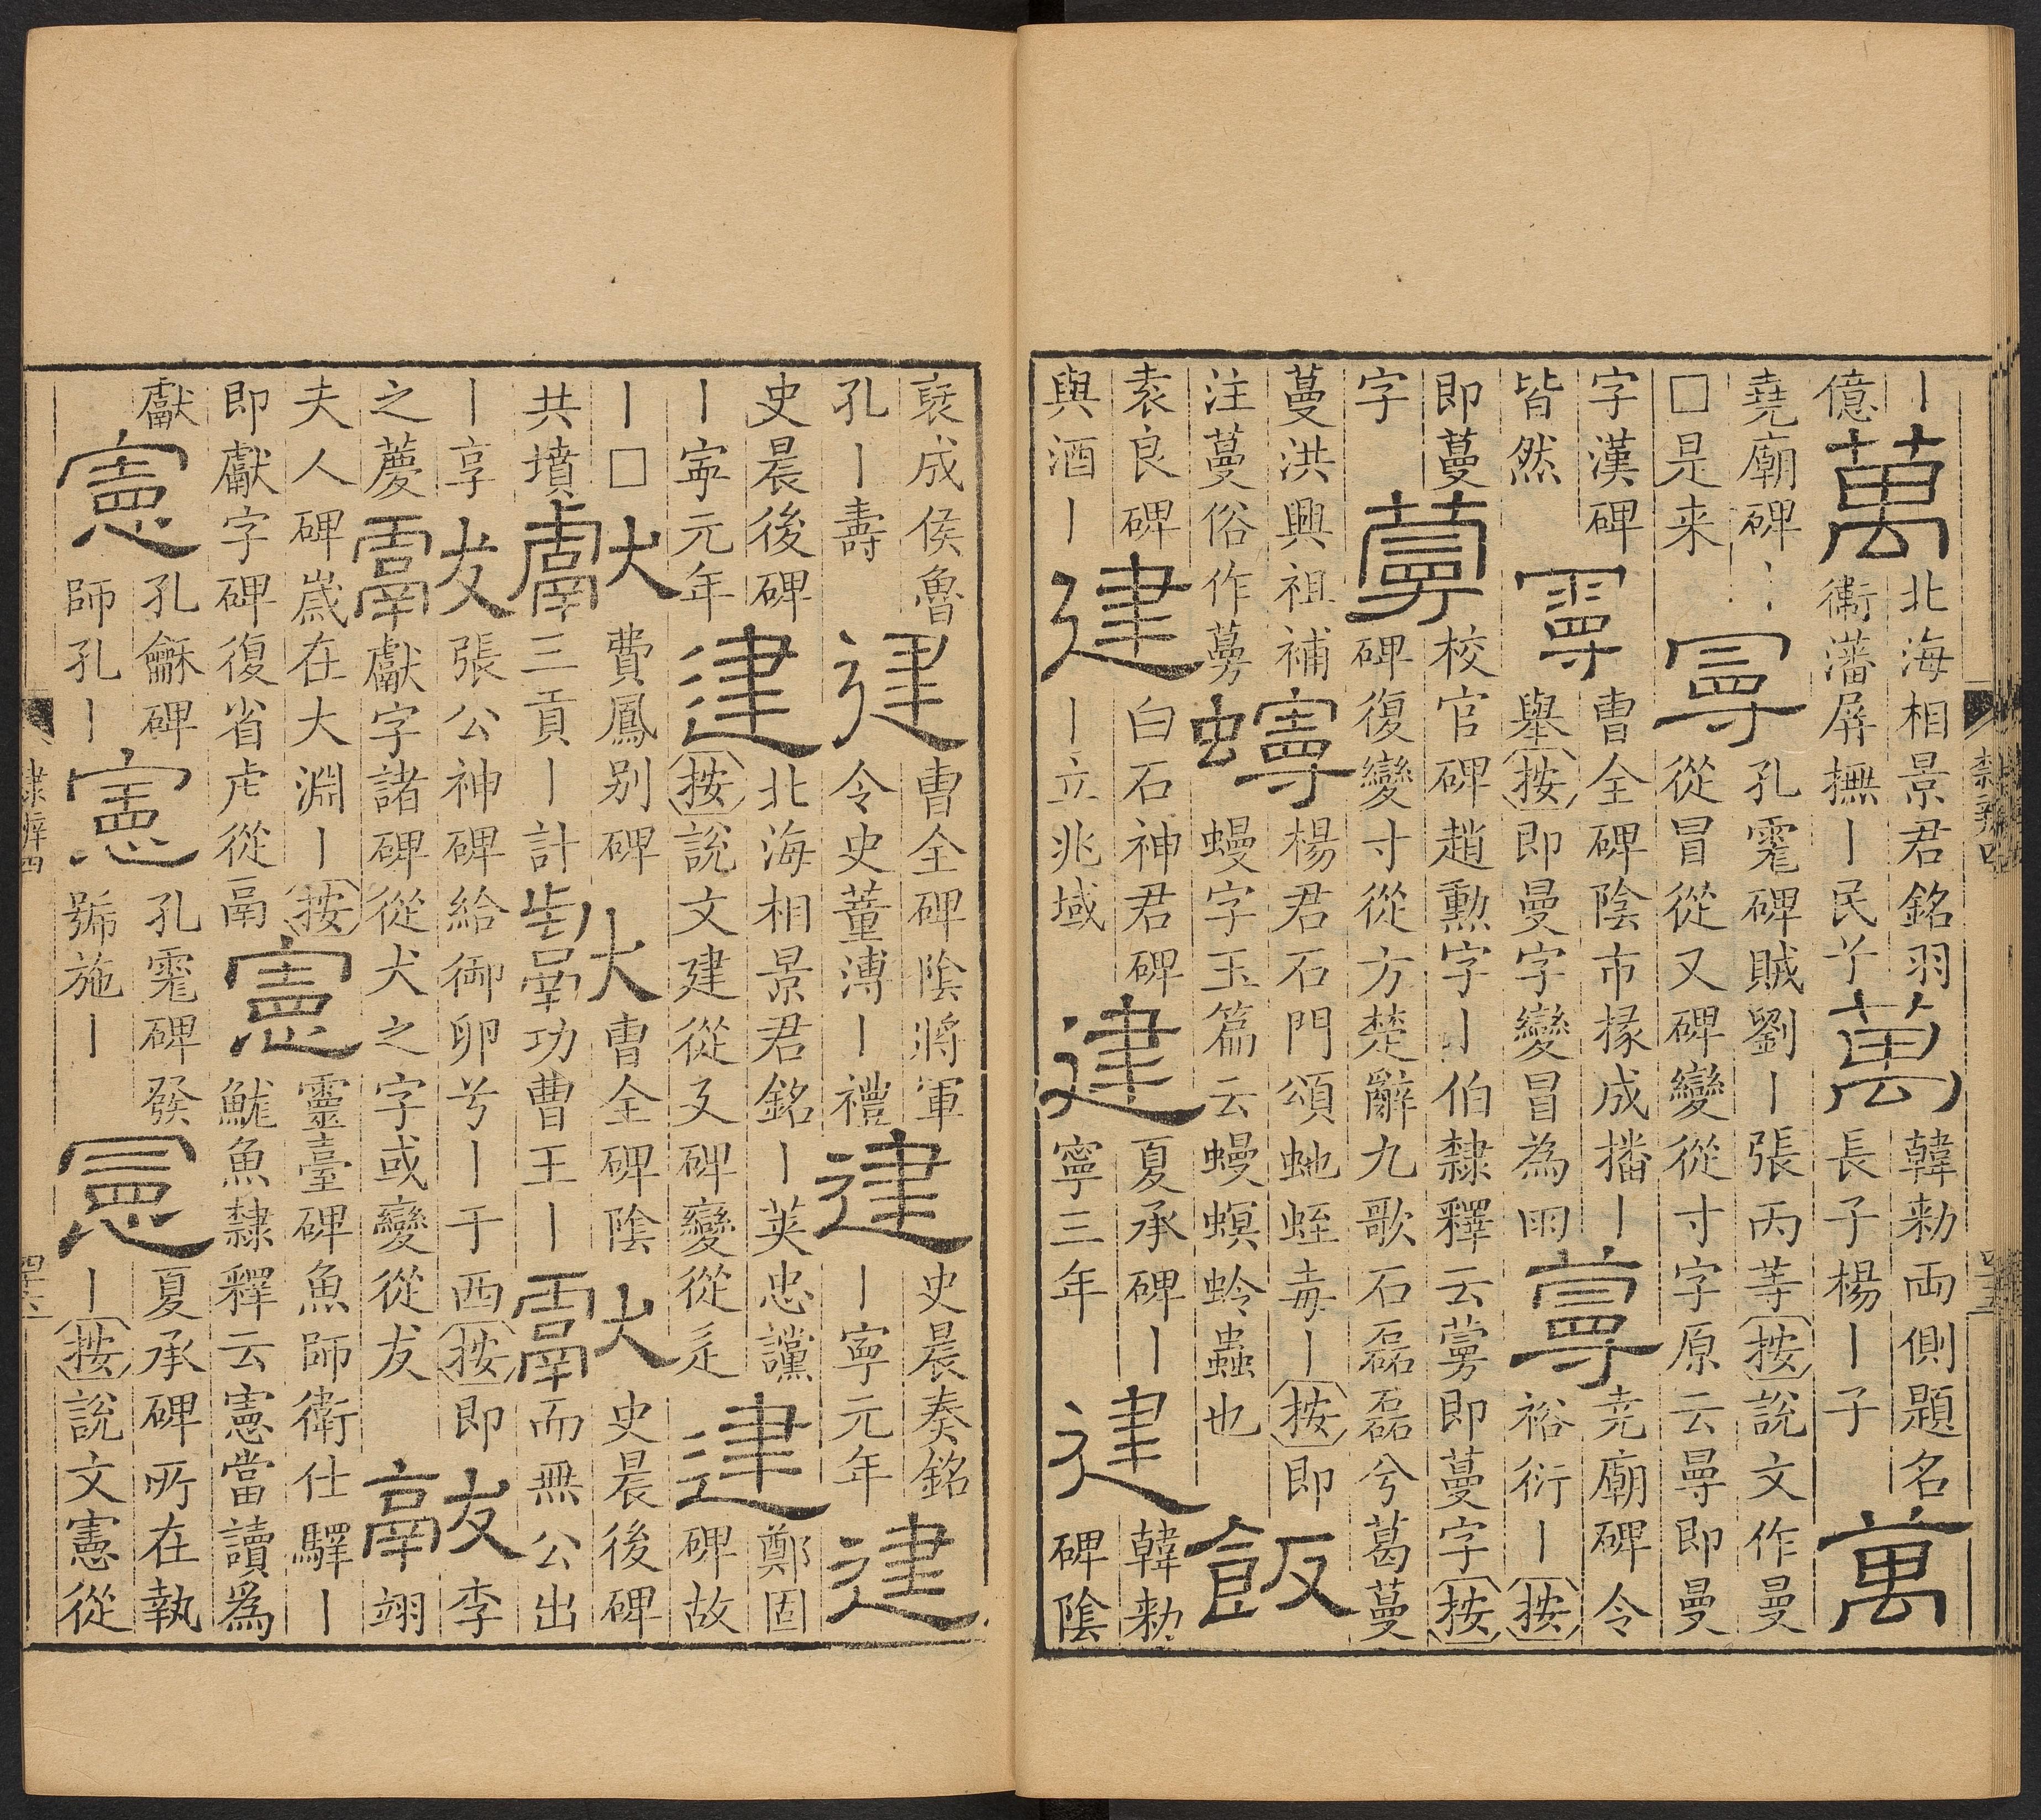 丨
億
萬
北海相景君銘羽
衛藩屏撫丨民㐰
萬
韓勑兩側題名
長子楊丨子
萬
堯廟碑丨丨
□是来
㝵
孔宙碑賊劉丨張丙等按說文作曼
從冒從又碑變從寸字原云㝵即曼
字漢碑
皆然
曹全碑陰市掾成播丨
舉按即曼字變冒為𦉫
堯廟碑令
裕衍丨按
即蔓
字
校官碑趙勳字丨伯隸釋云蔓即蔓字按
碑復變寸從方楚辭九歌石磊磊兮葛蔓
蔓洪興祖補
注蔓俗作蔓
蟃
楊君石門頌虵蛭毒丨按即
蟃字玉篇云蟃螟蛉蟲也
飯
袁良碑
與酒丨
建
白石神君碑
丨立兆域
建
夏承碑丨
寧三年
建
韓勑
碑陰
隸辨四
四十五
裦成侯魯
孔丨壽
建
曹全碑陰將軍
令史董溥丨禮
建
史晨奏銘
丨寧元年
建
史晨後碑
丨寧元年
建
北海相景君銘丨筴忠讜
按說文建從廴碑變從辵
建
鄭固
碑故
丨□
共墳
獻
費鳳別碑
三貢丨計
獻
曹全碑陰
功曹王丨
獻
史晨後碑
而無公出
丨享
之薦
獻
張公神碑給御卵兮丨于西按即
獻字諸碑從犬之字或變從犮
獻
李
翊
夫人碑歳在大淵丨按
即獻字碑復省虍從鬲
憲
靈臺碑魚師衛仕驛丨
魷魚隸釋云憲當讀爲
獻
憲
孔龢碑
師孔丨
憲
孔宙碑發
號施丨
憲
夏承碑所在執
丨按說文憲從
隸辨四
四十六